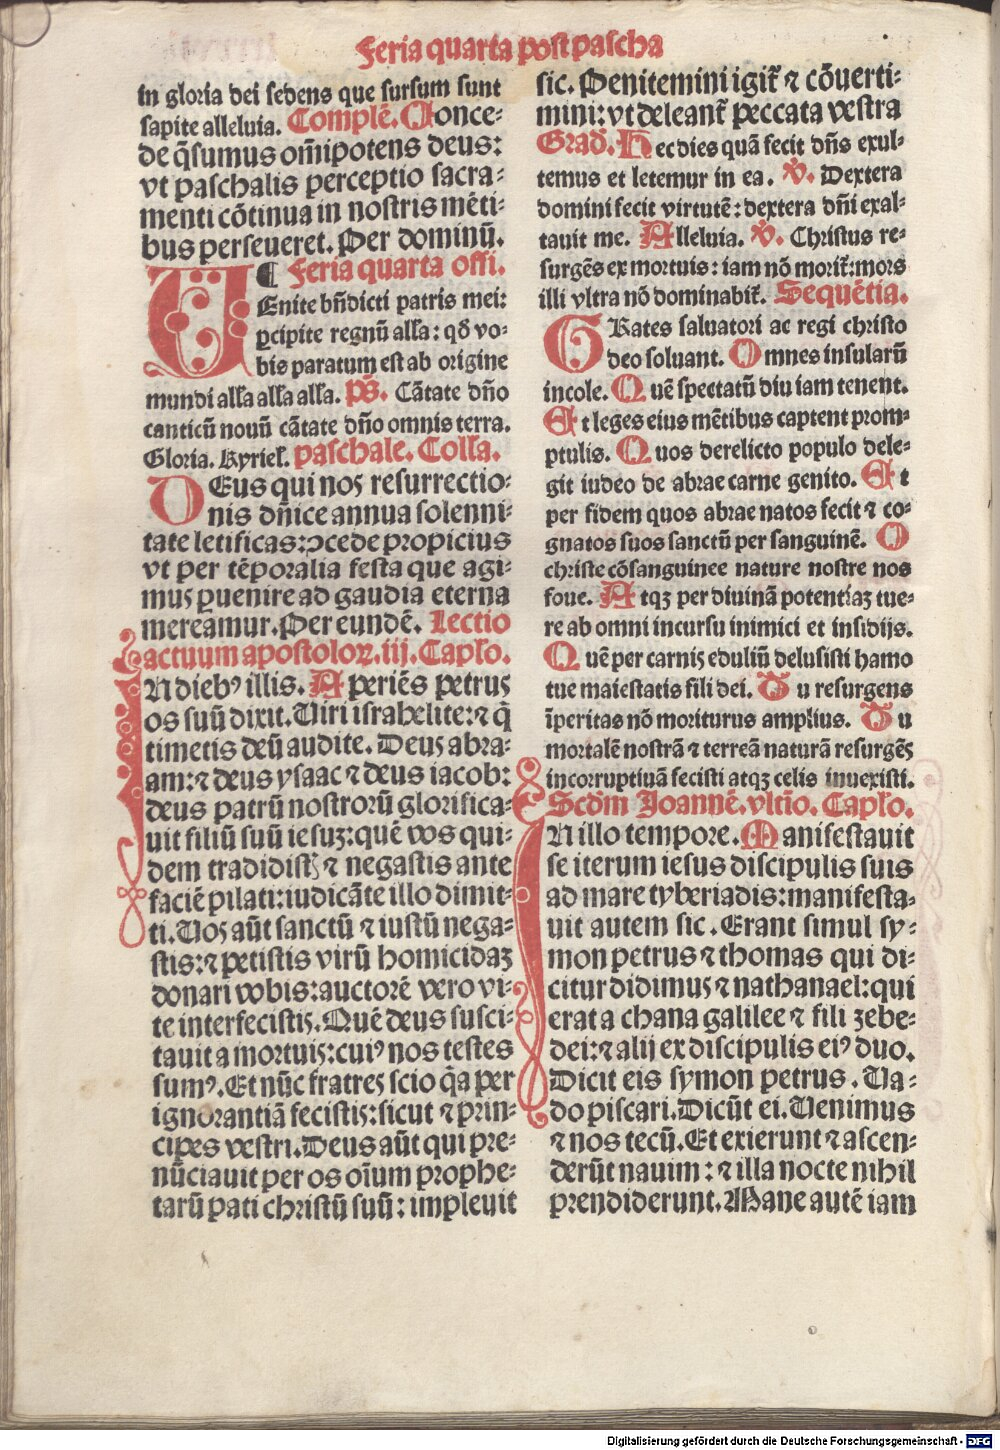 Feria quarta post pascha
in gloria dei sedens que sursum sunt
sapite alleluia. Complē. Conce⸗
de q̄sumus om̄ipotens deus:
vt paschalis perceptio sacra⸗
menti cōtinua in nostris mēti⸗
bus perseueret. Per dominū.
¶ Feria quarta offi.
VEnite bn̄dicti patris mei:
ꝑcipite regnū alľa: qđ vo⸗
bis paratum est ab origine
mundi alľa alľa alľa. ps̄. Cātate dn̄o
canticū nouū cātate dn̄o omnis terra.
Gloria. Kyriel̄. paschale. Colľa.
DEus qui nos resurrectio⸗
nis dn̄ice annua solenni⸗
tate letificas: ꝯcede propicius
vt per tēporalia festa que agi⸗
mus ꝑuenire ad gaudia eterna
mereamur. Per eundē. Lectio
actuum apostoloꝝ. iij. Capľo.
IN diebꝰ illis. Aperiēs petrus
os suū dixit. Uiri israhelite: ⁊ q̄
timetis deū audite. Deus abra⸗
am: ⁊ deus ysaac ⁊ deus iacob:
deus patrū nostrorū glorifica⸗
uit filiū suū iesuꝫ: quē vos qui⸗
dem tradidistꝭ ⁊ negastis ante
faciē pilati: iudicāte illo dimit⸗
ti. Uos aūt sanctū ⁊ iustū nega⸗
stis: ⁊ petistis virū homicidaꝫ
donari vobis: auctorē vero vi⸗
te interfecistis. Quē deus susci⸗
tauit a mortuis: cuiꝰ nos testes
sumꝰ. Et nūc fratres scio q̄a per
ignorantiā fecistis: sicut ⁊ prin⸗
cipes vestri. Deus aūt qui pre⸗
nūciauit per os oīum prophe⸗
tarū pati christū suū: impleuit
sic. Penitemini igit̄ ⁊ cōuerti⸗
mini: vt deleant̄ peccata vestra
Grad̄. Hec dies quā fecit dn̄s exul⸗
temus et letemur in ea. ℣. Dextera
domini fecit virtutē: dextera dn̄i exal⸗
tauit me. Alleluia. ℣. Christus re⸗
surgēs ex mortuis: iam nō morit̄: mors
illi vltra nō dominabit̄. Sequētia.
GRates saluatori ac regi christo
deo soluant. Omnes insularū
incole. Quē spectatū diu iam tenent.
Et leges eius mētibus captent prom⸗
ptulis. Quos derelicto populo dele⸗
git iudeo de abrae carne genito. Et
per fidem quos abrae natos fecit ⁊ co⸗
gnatos suos sanctū per sanguinē. O
christe cōsanguinee nature nostre nos
foue. Atqꝫ per diuinā potentiaꝫ tue⸗
re ab omni incursu inimici et insidijs.
Quē per carnis eduliū delusisti hamo
tue maiestatis fili dei. Tu resurgens
īperitas nō moriturus amplius. Tu
mortalē nostrā ⁊ terreā naturā resurgēs
incorruptiuā fecisti atqꝫ celis inuexisti.
Scd̄m Joannē. vltīo. Capľo.
IN illo tempore. Manifestauit
se iterum iesus discipulis suis
ad mare tyberiadis: manifesta⸗
uit autem sic. Erant simul sy⸗
mon petrus ⁊ thomas qui di⸗
citur didimus ⁊ nathanael: qui
erat a chana galilee ⁊ fili zebe⸗
dei: ⁊ alij ex discipulis eiꝰ duo.
Dicit eis symon petrus. Ua⸗
do piscari. Dicūt ei. Uenimus
⁊ nos tecū. Et exierunt ⁊ ascen⸗
derūt nauim: ⁊ illa nocte nihil
prendiderunt. Mane autē iam
Digitalisierung gefördert durch die Deutsche Forschungsgemeinschaft - DFG